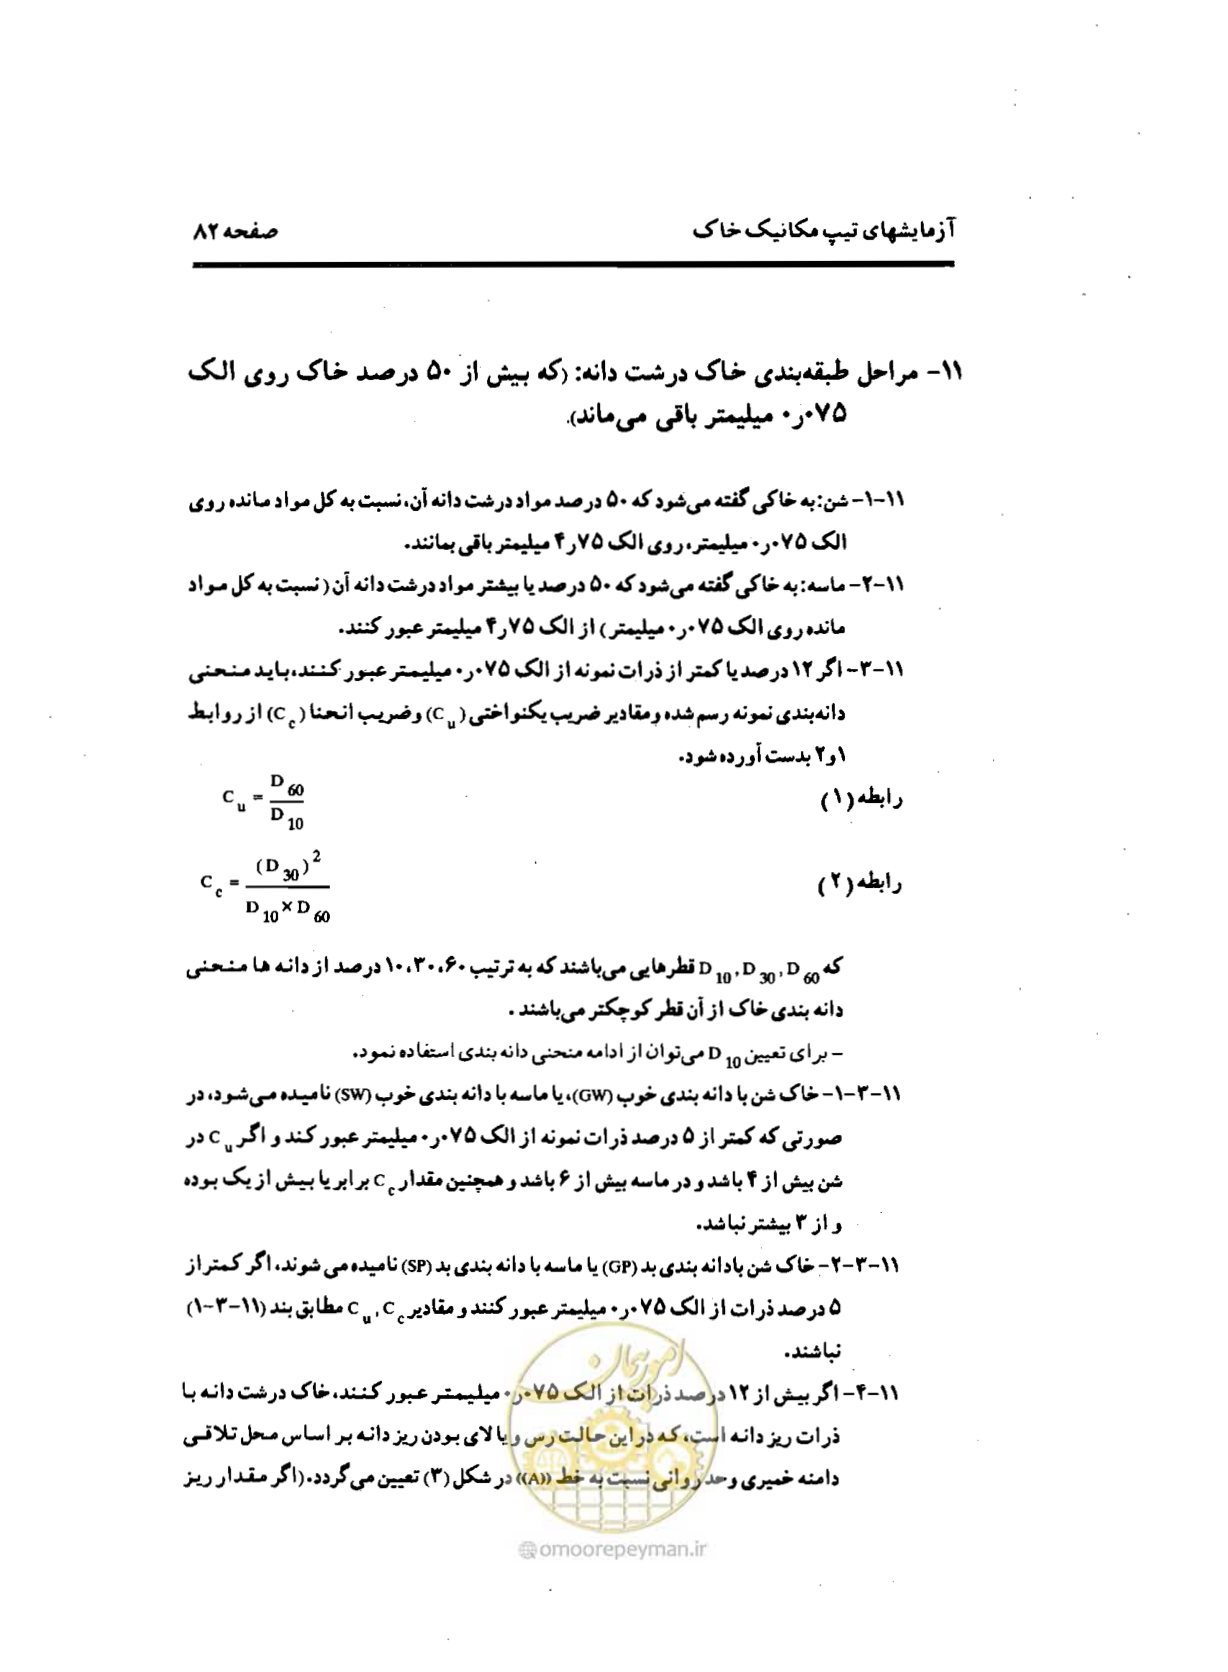 آزمایشهای تیپ مکانیک خاک صفحه ۸۲
۱۱- مراحل طبقه‌بندی خاک درشت دانه: (که بیش از ۵۰ درصد خاک روی الک
۰٫۰۷۵ میلیمتر باقی می‌ماند).
۱۱-۱- شن: به خاکی گفته می‌شود که ۵۰ درصد مواد درشت دانه آن، نسبت به کل مواد مانده روی
الک ۰٫۰۷۵ میلیمتر، روی الک ۴٫۷۵ میلیمتر باقی بمانند.
۱۱-۲- ماسه: به خاکی گفته می‌شود که ۵۰ درصد یا بیشتر مواد درشت دانه آن (نسبت به کل مواد
مانده روی الک ۰٫۰۷۵ میلیمتر) از الک ۴٫۷۵ میلیمتر عبور کنند.
۱۱-۳- اگر ۱۲ درصد یا کمتر از ذرات نمونه از الک ۰٫۰۷۵ میلیمتر عبور کنند، باید منحنی
دانه‌بندی نمونه رسم شده و مقادیر ضریب یکنواختی (C u) و ضریب انحنا (C c) از روابط
۱ و ۲ بدست آورده شود.
رابطه (۱) C u = D 60 / D 10
رابطه (۲) C c = (D 30)² / D 10 × D 60
که D 10, D 30, D 60 قطرهایی می‌باشند که به ترتیب ۶۰، ۳۰، ۱۰ درصد از دانه ها منحنی
دانه بندی خاک از آن قطر کوچکتر می‌باشند.
- برای تعیین D 10 می‌توان از ادامه منحنی دانه بندی استفاده نمود.
۱۱-۳-۱- خاک شن با دانه بندی خوب (GW)، یا ماسه با دانه بندی خوب (SW) نامیده می‌شود، در
صورتی که کمتر از ۵ درصد ذرات نمونه از الک ۰٫۰۷۵ میلیمتر عبور کند و اگر C u در
شن بیش از ۴ باشد و در ماسه بیش از ۶ باشد و همچنین مقدار C c برابر یا بیش از یک بوده
و از ۳ بیشتر نباشد.
۱۱-۳-۲- خاک شن بادانه بندی بد (GP) یا ماسه با دانه بندی بد (SP) نامیده می شوند، اگر کمتر از
۵ درصد ذرات از الک ۰٫۰۷۵ میلیمتر عبور کنند و مقادیر C u, C c مطابق بند (۱۱-۳-۱)
نباشند.
۱۱-۴- اگر بیش از ۱۲ درصد ذرات از الک ۰٫۰۷۵ میلیمتر عبور کنند، خاک درشت دانه با
ذرات ریز دانه است، که در این حالت رس و یا لای بودن ریز دانه بر اساس محل تلاقی
دامنه خمیری و حد روانی نسبت به خط ((A)) در شکل (۳) تعیین می گردد. (اگر مقدار ریز
امور پیمان
omoorepeyman.ir